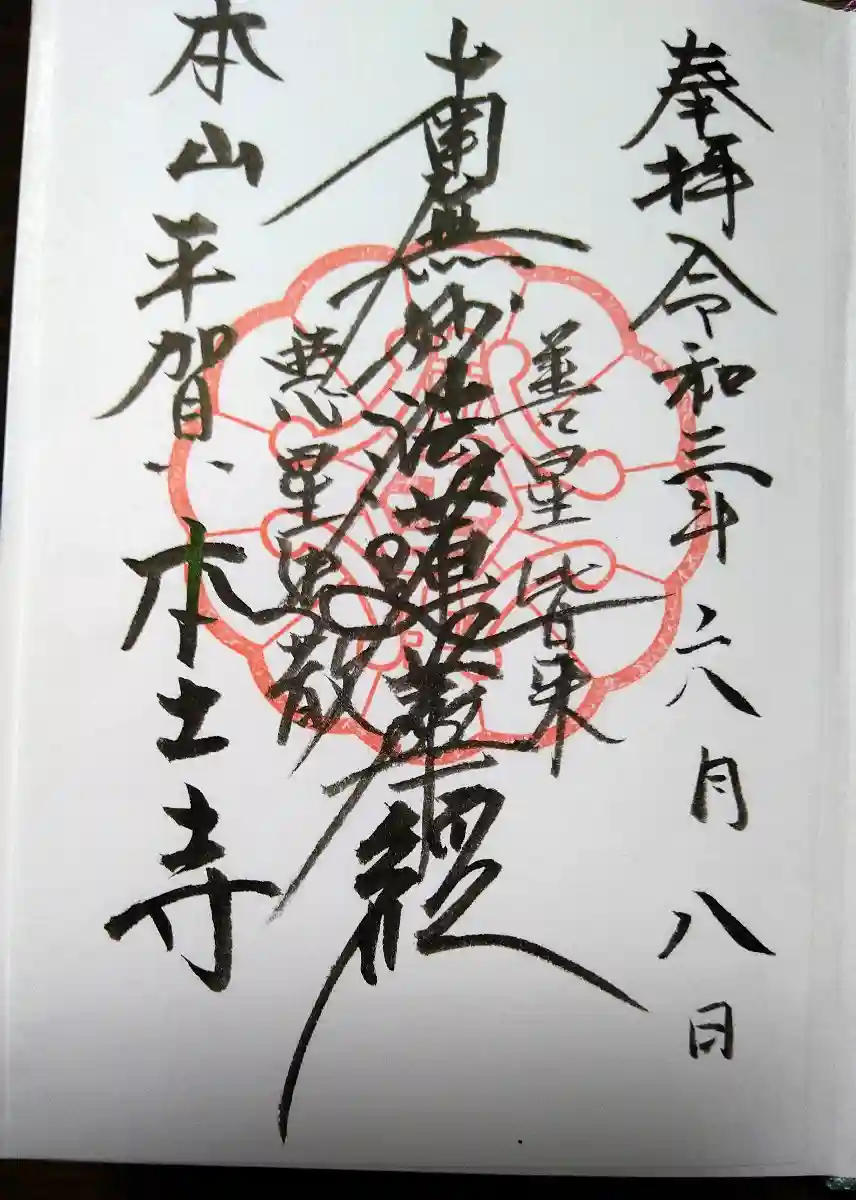 奉拝 令和三年六月八日
善星皆来
南無妙法蓮華経
悪星退散
本山平賀 本土寺